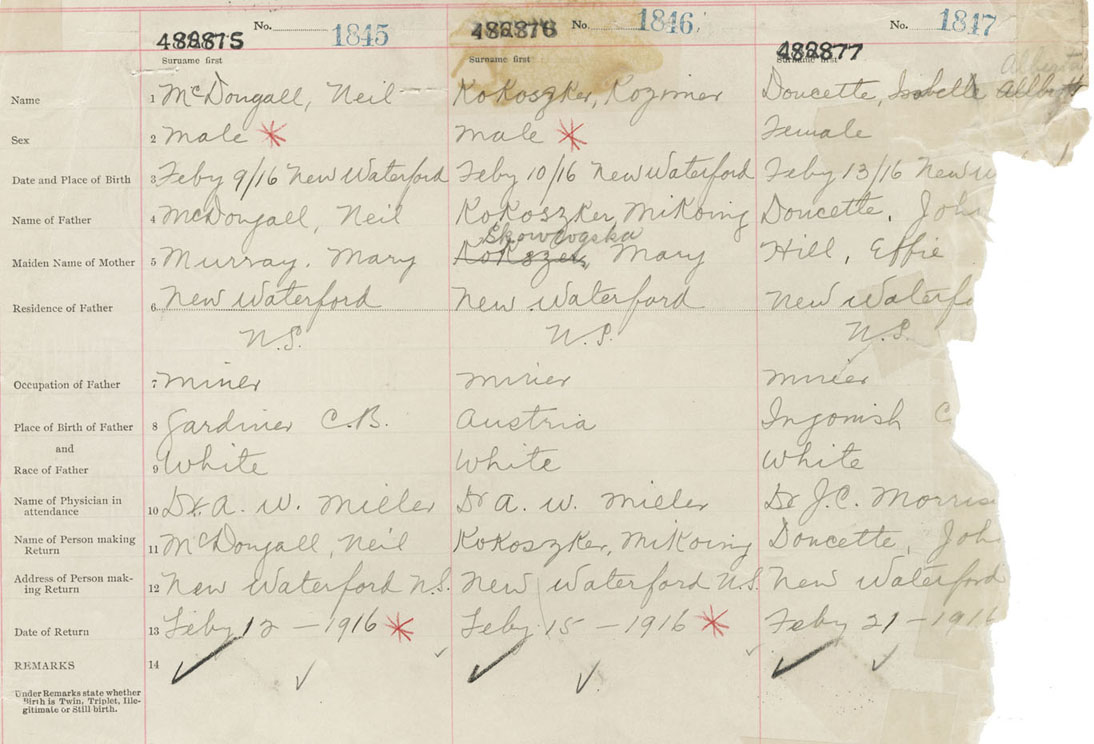 No. 1845 No. 1846 No. 1847
482875 482876 482877
Surname first Surname first Surname first
Name 1 McDougall, Neil Kokoszker, Kozimer Doucette, Isabelle
Sex 2 Male Male Female
Date and Place of Birth 3 Feby 9/16 New Waterford Feby 10/16 New Waterford Feby 13/16 New
Name of Father 4 McDougall, Neil Kokoszker, Mikoing Doucette, John
Maiden Name of Mother 5 Murray, Mary Mary Hill, Effie
Residence of Father 6 New Waterford New Waterford New Waterfo
N.S. N.S. N.S.
Occupation of Father 7 Miner Miner Miner
Place of Birth of Father 8 Gardiner C.B. Austria Ingonish C
and
Race of Father 9 White White White
Name of Physician in
attendance 10 Dr. A. W. Miller Dr A. W. Miller Dr J.C. Morris
Name of Person making
Return 11 McDougall, Neil Kokoszker, Mikoing Doucette, John
Address of Person mak-
ing Return 12 New Waterford N.S. New Waterford N.S. New Waterford
Date of Return 13 Feby 12 – 1916 Feby 15 – 1916 Feby 21 – 1916
REMARKS 14
Under Remarks state whether
Birth is Twin, Triplet, Ille-
gitimate or Still birth.